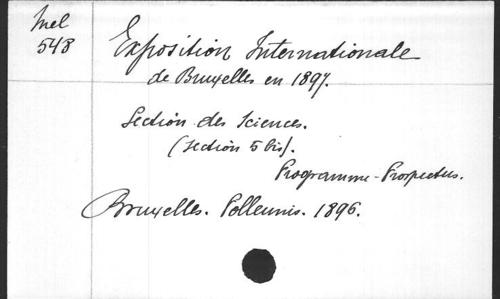 Mel
548
Exposition Internationale
de Bruxelles en 1897.
Section des Sciences.
(Section 5 bis).
Programme-Prospectus.
Bruxelles. Polleunis. 1896.